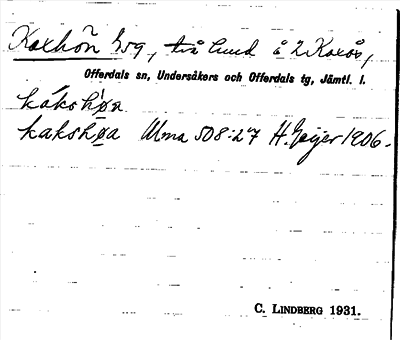 Kaxhön
Offerdals sn, Undersåkers och Offerdals tg, Jämtl. l.
kákshø̱a
kakshø̱a Ulma 508:27 H. Geijer 1906.
C. LINDBERG 1931.